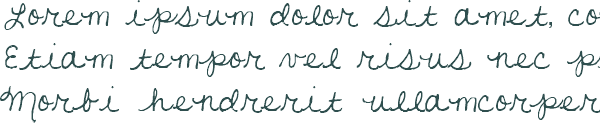 Lorem ipsum dolor sit amet, co
Etiam tempor vel risus nec p
Morbi hendrerit ullamcorper